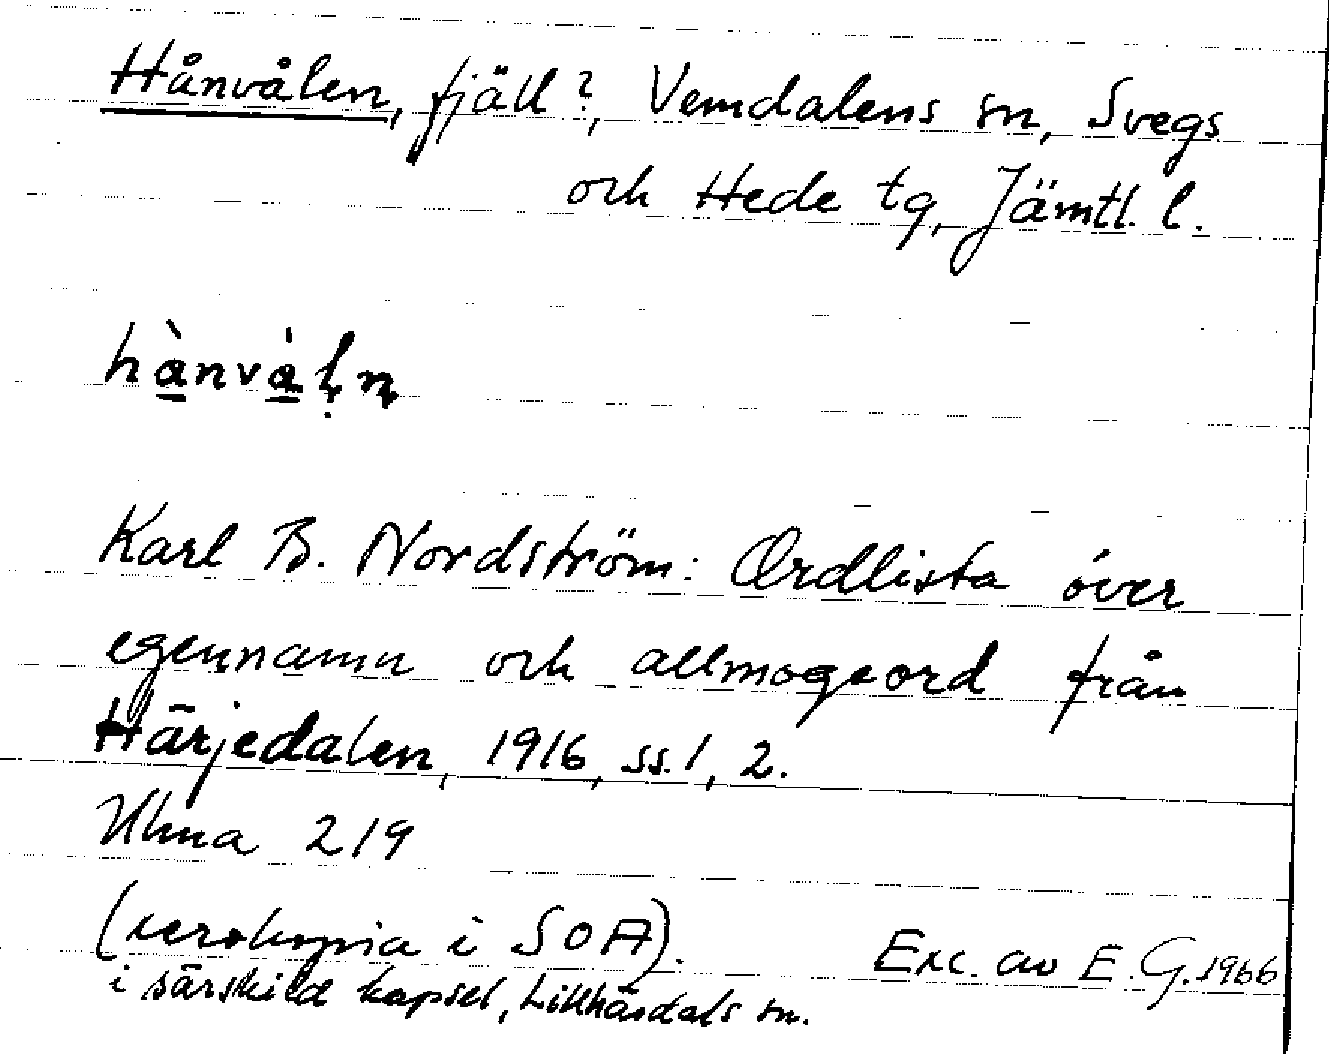 Hånvålen, fjäll?, Vemdalens sn, Svegs
och Hede tg, Jämtl. l.
hа̀nvа̀ḷn̥
Karl B. Nordström: Ordlista över
egennamn och allmogeord från
Härjedalen, 1916, ss. 1, 2.
Ulma 219
(xerokopia i SOA). Exc. av E. G. 1966
i särskild kapsel, Lillhärdals sn.